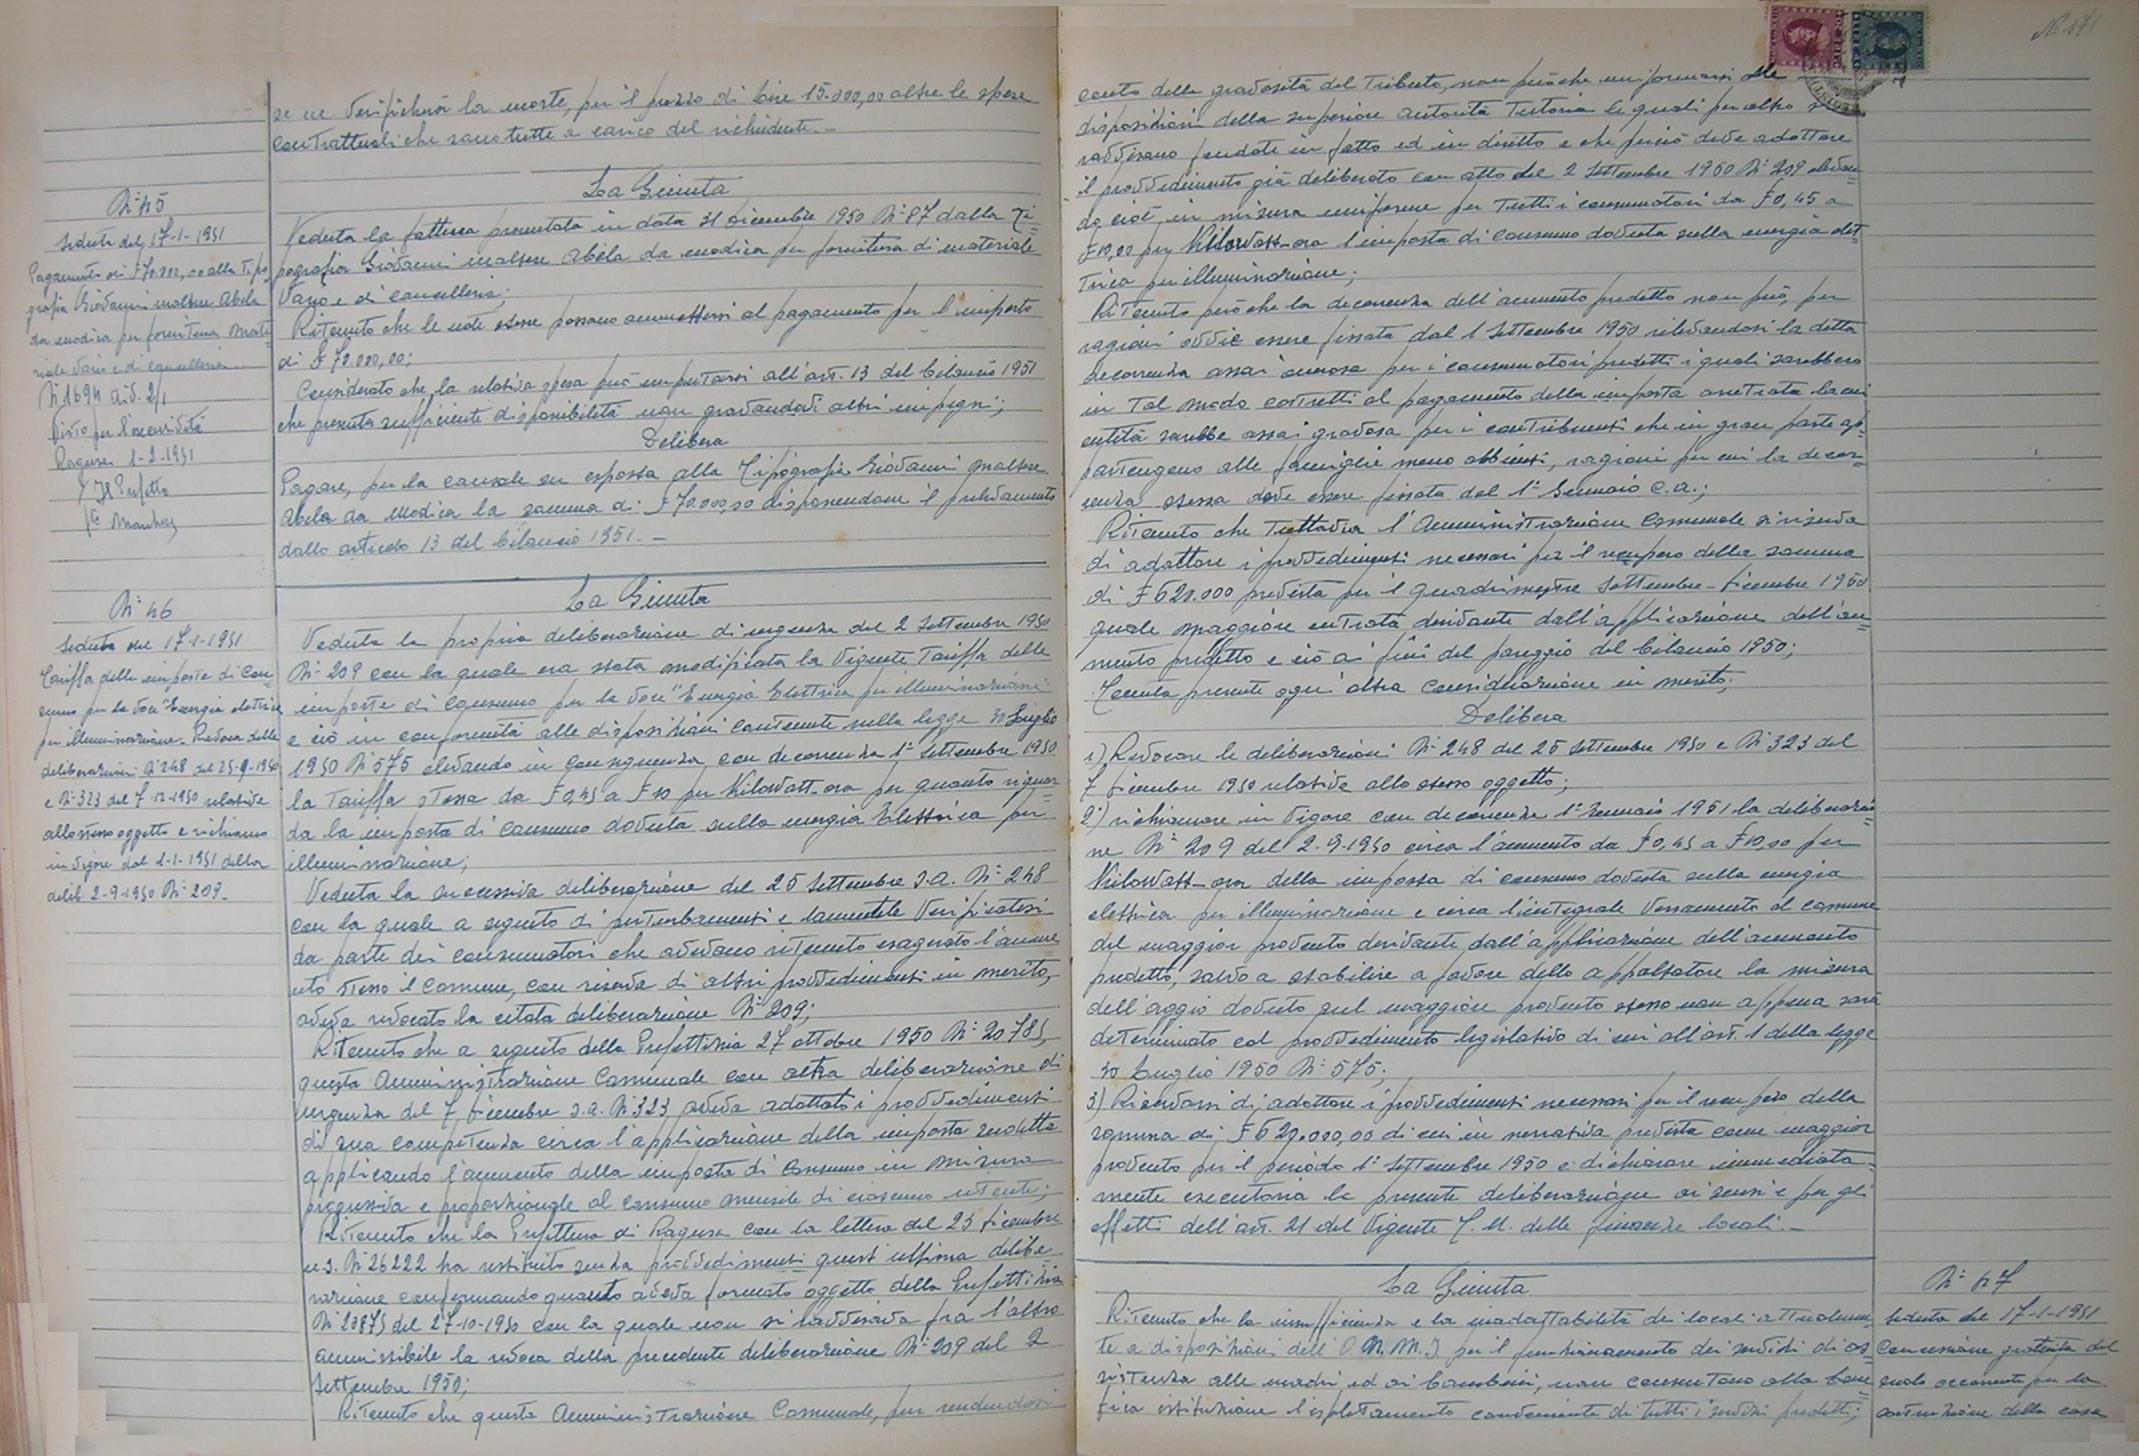 se ne verificherà la morte, per il prezzo di lire 15.000,00 oltre le spese
contrattuali che sono tutte a carico del richiedente.-
N° 45
Seduta del 17-1-1951
Pagamento di £ 70.000,00 alla Tipo=
grafia Giovanni Maltese Abela
da Modica per fornitura mate=
riale vario e di cancelleria
N° 1694 Div. 2/1
Visto per l'esecutività
Ragusa 1-2-1951
Il Prefetto
La Giunta
Veduta la fattura presentata in data 31 dicembre 1950 N° 87 dalla Ti=
pografia Giovanni Maltese Abela da Modica per fornitura di materiale
vario e di cancelleria;
Ritenuto che le note stesse possono ammettersi al pagamento per l'importo
di £ 70.000,00;
Considerato che la relativa spesa può imputarsi all'art. 13 del bilancio 1951
che presenta sufficiente disponibilità non gravandovi altri impegni;
Delibera
Pagare, per la causale su esposta alla Tipografia Giovanni Maltese
Abela da Modica la somma di £ 70.000,00 disponendone il prelevamento
dallo articolo 13 del bilancio 1951.-
N° 46
Seduta del 17-1-1951
Tariffa delle imposte di Con=
sumo per la voce "Energia elettrica
per illuminazione. Revoca delle
deliberazioni N° 248 del 25-9-1950
e N° 323 del 7-12-1950 relative
allo stesso oggetto e richiamo
in vigore dal 1-1-1951 della
delib. 2-9-1950 N° 209.
La Giunta
Veduta la propria deliberazione di urgenza del 2 Settembre 1950
N° 209 con la quale era stata modificata la vigente Tariffa delle
imposte di consumo per la voce "Energia Elettrica per illuminazione"
e ciò in conformità alle disposizioni contenute nella legge 30 Luglio
1950 N° 575 elevando in conseguenza con decorrenza 1° Settembre 1950
la Tariffa stessa da £ 0,45 a £ 10 per Kilowatt-ora per quanto riguar=
da la imposta di consumo dovuta sulla energia Elettrica per
illuminazione;
Veduta la successiva deliberazione del 25 Settembre s.a. N° 248
con la quale a seguito di perturbamenti e lamentele verificatesi
da parte dei consumatori che avevano ritenuto esagerato l'aume
nto stesso il Comune, con riserva di altri provvedimenti in merito,
aveva revocato la citata deliberazione N° 209;
Ritenuto che a seguito della Prefettizia 27 ottobre 1950 N° 20785,
questa Amministrazione Comunale con altra deliberazione di
urgenza del 7 dicembre s.a. N° 323 aveva adottato i provvedimenti
di sua competenza circa l'applicazione della imposta suddetta
applicando l'aumento della imposta di consumo in misura
progressiva e proporzionale al consumo mensile di ciascuno utente;
Ritenuto che la Prefettura di Ragusa con la lettera del 23 dicembre
u.s. N° 26222 ha restituito senza provvedimenti quest'ultima delibe
razione confermando quanto aveva formato oggetto della Prefettizia
N° 20875 del 27-10-1950 con la quale non si ravvisava fra l'altro
ammissibile la revoca della precedente deliberazione N° 209 del 2
Settembre 1950;
Ritenuto che questa Amministrazione Comunale, pur rendendosi
N° 171
conto della gravosità del Tributo, non può che uniformarsi alle
disposizioni della superiore autorità Tutoria le quali per altro si
ravvisano fondate in fatto ed in diritto e che perciò deve adottare
il provvedimento già deliberato con atto del 2 Settembre 1950 N° 209 elevan=
do cioè in misura uniforme per tutti i consumatori da £ 0,45 a
£ 10,00 per Kilowatt-ora l'imposta di consumo dovuta sulla energia elet=
trica per illuminazione;
Ritenuto però che la decorrenza dell'aumento predetto non può, per
ragioni ovvie essere fissata dal 1 Settembre 1950 rilevandosi la detta
decorrenza assai onerosa per i consumatori predetti i quali sarebbero
in tal modo costretti al pagamento della imposta arretrata la cui
entità sarebbe assai gravosa per i contribuenti che in gran parte ap=
partengono alle famiglie meno abbienti, ragioni per cui la decor=
renza stessa deve essere fissata dal 1° Gennaio c.a.;
Ritenuto che tuttavia l'Amministrazione Comunale si riserva
di adottare i provvedimenti necessari per il recupero della somma
di £ 620.000 prevista per il quadrimestre Settembre-dicembre 1950
quale maggiore entrata derivante dall'applicazione dell'au=
mento predetto e ciò ai fini del pareggio del bilancio 1950;
Tenuta presente ogni altra considerazione in merito;
Delibera
1) Revocare le deliberazioni N° 248 del 25 Settembre 1950 e N° 323 del
7 dicembre 1950 relative allo stesso oggetto;
2) richiamare in vigore con decorrenza 1° Gennaio 1951 la deliberazio=
ne N° 209 del 2-9-1950 circa l'aumento da £ 0,45 a £ 10,00 per
Kilowatt-ora della imposta di consumo dovuta sulla energia
elettrica per illuminazione e circa l'integrale versamento al comune
del maggior provento derivante dall'applicazione dell'aumento
predetto, salvo a stabilire a favore dello appaltatore la misura
dell'aggio dovuto sul maggiore provento stesso non appena sarà
determinato col provvedimento legislativo di cui all'art. 1 della legge
30 Luglio 1950 N° 575;
3) Riservarsi di adottare i provvedimenti necessari per il recupero della
somma di £ 620.000,00 di cui in narrativa prevista come maggior
provento per il periodo 1° Settembre 1950 e dichiarare immediata=
mente esecutoria la presente deliberazione ai sensi e per gli
effetti dell'art. 21 del vigente T.U. delle finanze locali.-
La Giunta
Ritenuto che la insufficienza e la inadattabilità dei locali attualmen=
te a disposizioni dell'O.N.M.I per il funzionamento dei servizi di as=
sistenza alle madri ed ai bambini, non consentano alla bene
fica istituzione l'espletamento conveniente di tutti i servizi predetti;
N° 47
Seduta del 17-1-1951
Concessione gratuita del
suolo occorrente per la
costruzione della casa